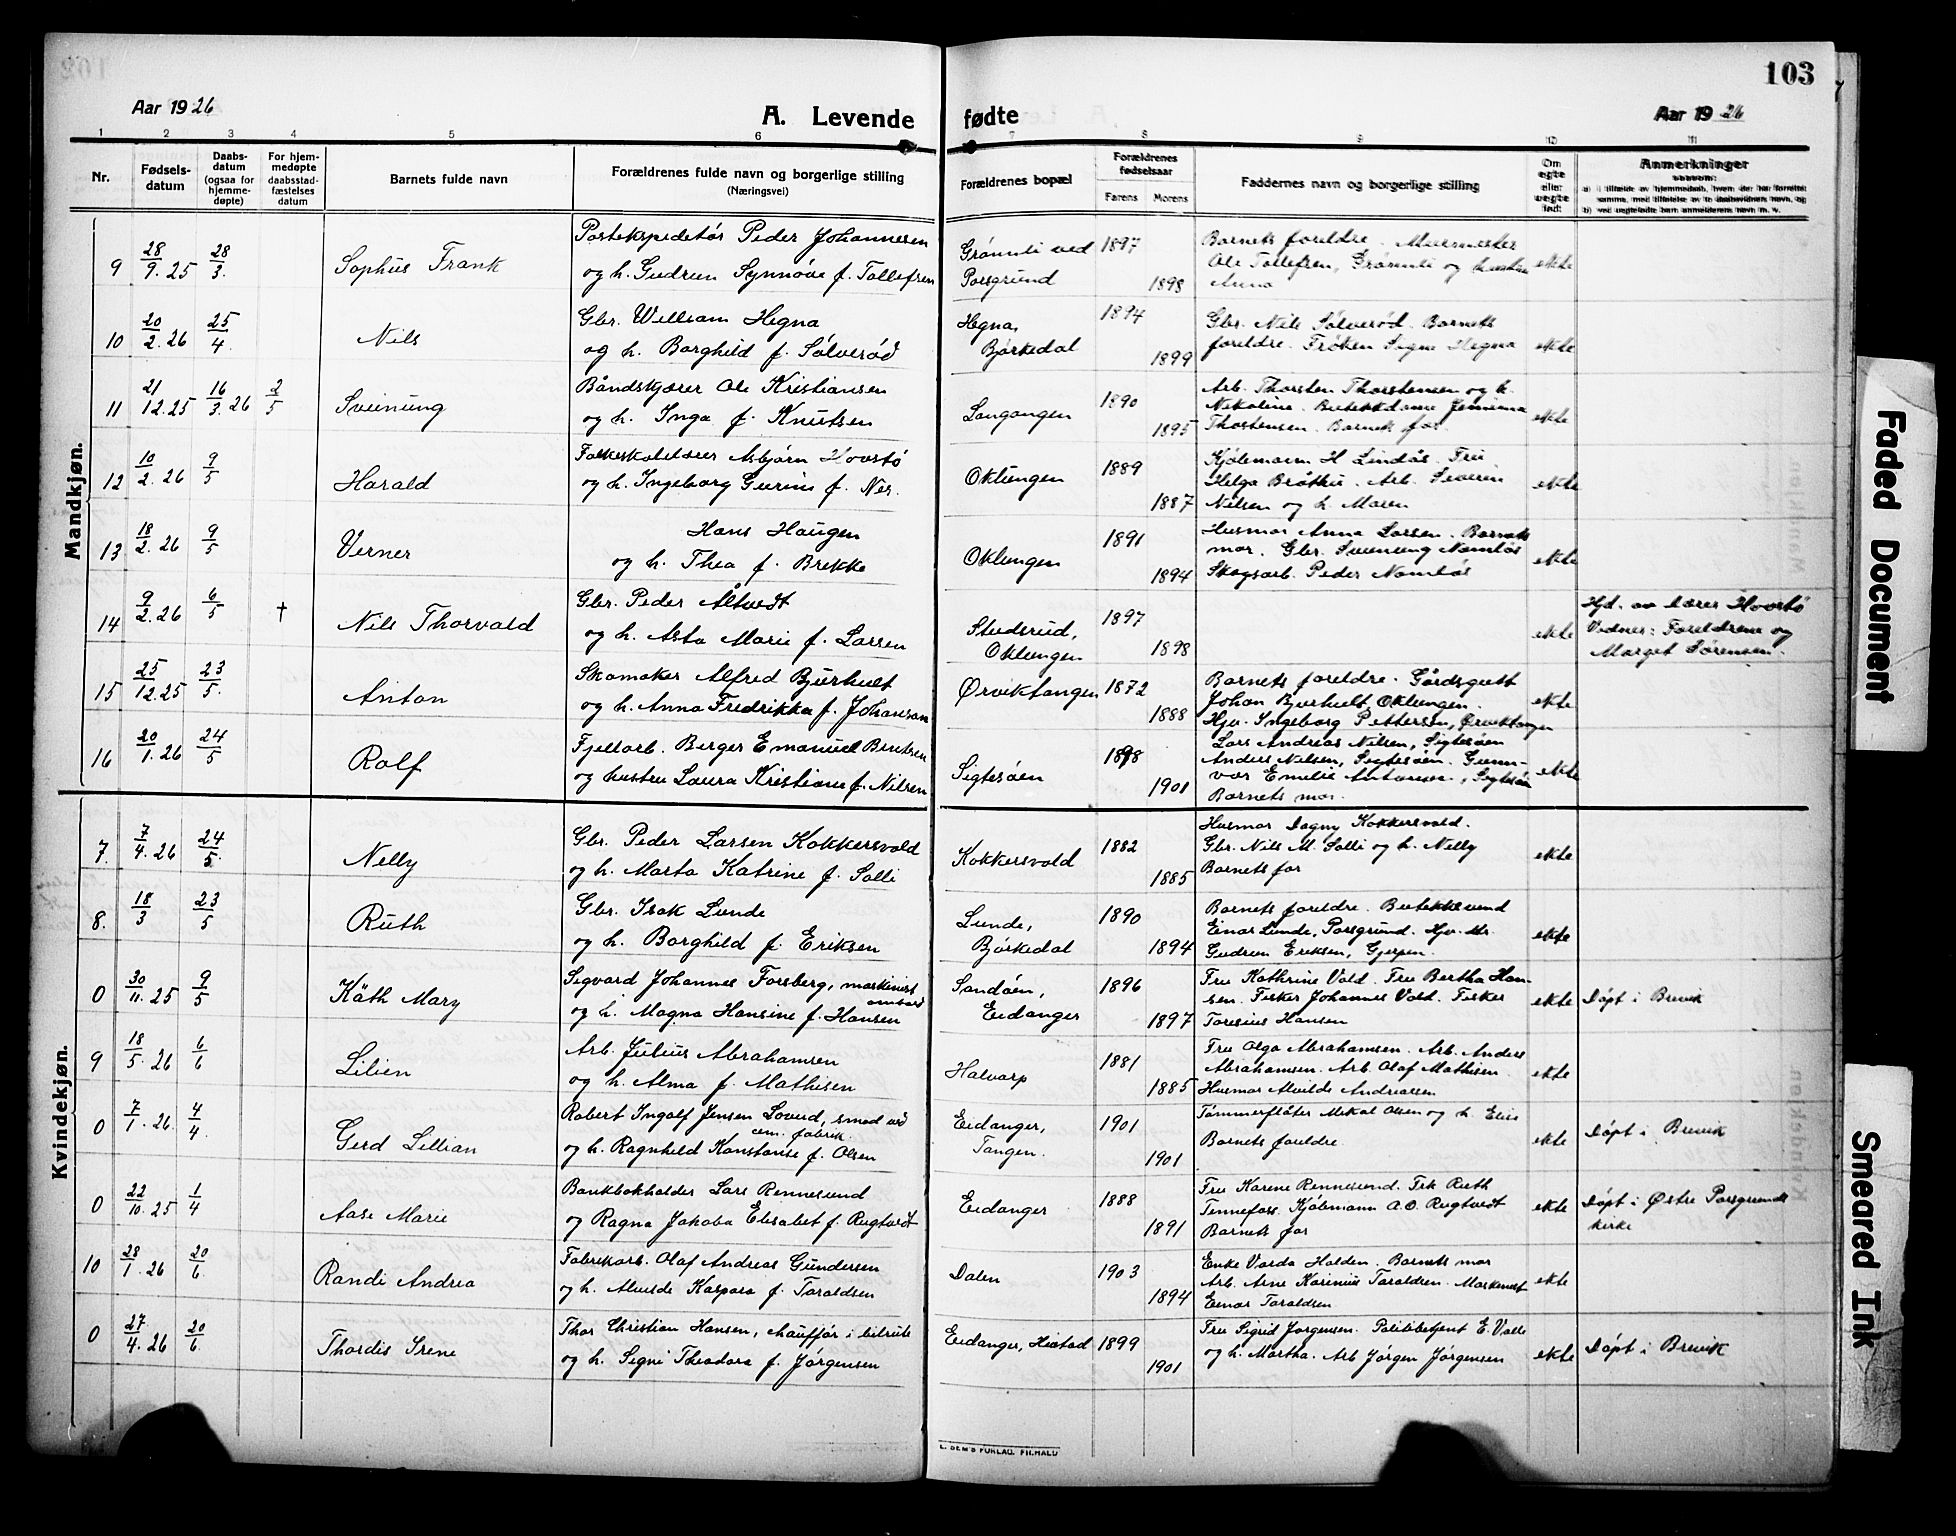 103
Aar 1926
A. Levende fødte
Aar 1926
1 2 3 4 5 6 7 8 9 10 11
Nr.
Fødsels-
datum
Daabs-
datum
(ogsaa for
hjemme-
døpte)
For hjem-
medøpte
daabsstad-
fæstelses
datum
Barnets fulde navn
Forældrenes fulde navn og borgerlige stilling
(Næringsvei)
Forældrenes bopæl
Forældrenes
fødselsaar
Farens Morens
Faddernes navn og borgerlige stilling
Om
egte
eller
uegte
født
Anmerkninger
saasom:
a) i tilfælde av hjemmedaab, hvem der har forrettet
samme, med tilføielse av to daabsvidners navn, og
b) ved uegtefødte barn anmelderens navn m. v.
Mandkjøn.
9 28/9.25 28/3. Sophus Frank
Postekspeditør Peder Johannesen
og h. Gudrun Synnøve f. Tollefsen
Grønnli ved
Porsgrund
1897
1898
Barnets foreldre. Murmester
Ole Tollefsen, Grønnli og hustru
Anna
ekte
10 20/2.26 25/4. Nils
Gbr. William Hegna
og h. Borghild f. Sølverød
Hegna,
Bjørkedal
1894
1899
Gbr. Nils Sølverød. Barnets
foreldre. Frøken Signe Hegna
ekte
11 21/12.25 16/3.26 2/5 Sveinung
Båndskjærer Ole Kristiansen
og h. Inga f. Knutsen
Langangen
1890
1895
Arb. Thorsten Thorstensen og h.
Nikoline. Butikkdame
Thorstensen. Barnets far.
ekte
12 10/2.26 9/5 Harald
Folkeskolelærer Asbjørn Hovstø
og h. Ingeborg Gurine f. Nes.
Oklungen
1889
1887
Kjøbmann H Lindås. Fru
Helga Brøttu. Arb. Severin
Nilsen og h. Maren
ekte
13 18/2.26 9/5 Verner
Hans Haugen
og h. Thea f. Brekke
Oklungen
1891
1894
Husmor Anna Larsen. Barnets
mor. Gbr. Sveinung Nomløs
Skogsarb. Peder Nomløs
ekte
14 9/2.26 6/5 † Nils Thorvald
Gbr. Peder Åltvedt
og h. Asta Marie f. Larsen
Stulsrud,
Oklungen
1897
1898
ekte
Hjd. av lærer Hovstø
Vidner: Foreldrene og
Marget Sørensen.
15 25/12.25 23/5. Anton
Skomaker Alfred Bjurhult
og h. Anna Fredrikka f. Johanson
Ørviktangen
1872
1888
Barnets foreldre. Gårdsgutt
Johan Bjurhult, Oklungen.
Hjv. Ingeborg Pettersen, Ørviktangen
ekte
16 20/1.26 24/5 Rolf
Fjellarb. Berger Emanuel Bentsen
og hustru Laura Kristiane f. Nilsen
Sigtesøen
1898
1901
Lars Andreas Nilsen, Sigtesøen
Anders Nilsen, Sigtesøen. Gunn-
vor Emelie Antonsen, Sigtesøen
Barnets mor.
ekte
Kvindekjøn.
7. 7/4.26 24/5. Nelly
Gbr. Peder Larsen Kokkersvold
og h. Marta Katrine f. Solli
Kokkersvold
1882
1885
Husmor Dagny Kokkersvold.
Gbr. Nils M. Solli og h. Nelly
Barnets far
ekte
8. 18/3 23/5 Ruth
Gbr. Isak Lunde
og h. Borghild f. Eriksen
Lunde,
Bjørkedal
1890
1894
Barnets foreldre. Butikksvend
Einar Lunde, Porsgrund. Hjv.
Gudrun Eriksen, Gjerpen.
ekte
0 30/11.25 9/5 Käth Mary
Sigvard Johannes Forsberg, maskinist
ombord
og h. Magna Hansine f. Hansen
Sandøen,
Eidanger
1896
1897
Fru Kathrine Vold. Fru Bertha Han-
sen. Fisker Johannes Vold. Fisker
Toresius Hansen
ekte
Døpt i Brevik
9 18/5.26 6/6 Lilien
Arb. Julius Abrahamsen
og h. Alma f. Mathisen
Halvarp
1881
1885
Fru Olga Abrahamsen. Arb. Anders
Abrahamsen. Arb. Olaf Mathisen
Husmor Alvilde Andreassen
ekte
0 7/1.26 4/4. Gerd Lillian
Robert Ingolf Jensen Loverd, smed ved
cem. fabrik.
og h. Ragnhild Konstanse f. Olsen
Eidanger,
Tangen.
1901
1901
Tømmerfløter Mikal Olsen og h. Elise
Barnets foreldre.
ekte
Døpt i Brevik
0 22/10.25 1/4 Aase Marie
Bankbokholder Lars Rennesund
og Ragna Jakoba Elisabet f. Rugtvedt
Eidanger
1888
1891
Fru Karene Rennesund. Frk Ruth
Tinnefoss. Kjøbmann A.O. Rugtvedt
Barnets far
ekte
Døpt i Østre Porsgrunds
kirke
10 28/1.26 20/6. Randi Andrea
Fabrikarb. Olaf Andreas Gundersen
og h. Alvilde Kaspara f. Taraldsen
Dalen
1903
1894
Enke Varda Halden. Barnets mor
Arb. Arne Karinius Taraldsen. Maskinist
Einar Taraldsen
ekte
0 27/4.26 20/6. Thordis Irene
Thor Christian Hansen, chauffør i bilrute
og h. Signe Theodora f. Jørgensen
Eidanger, Heistad
1899
1901
Fru Sigrid Jørgensen. Politibetjent E. Valle
og h. Martha. Arb Jørgen Jørgensen
ekte
Døpt i Brevik
Faded Document
Smeared Ink